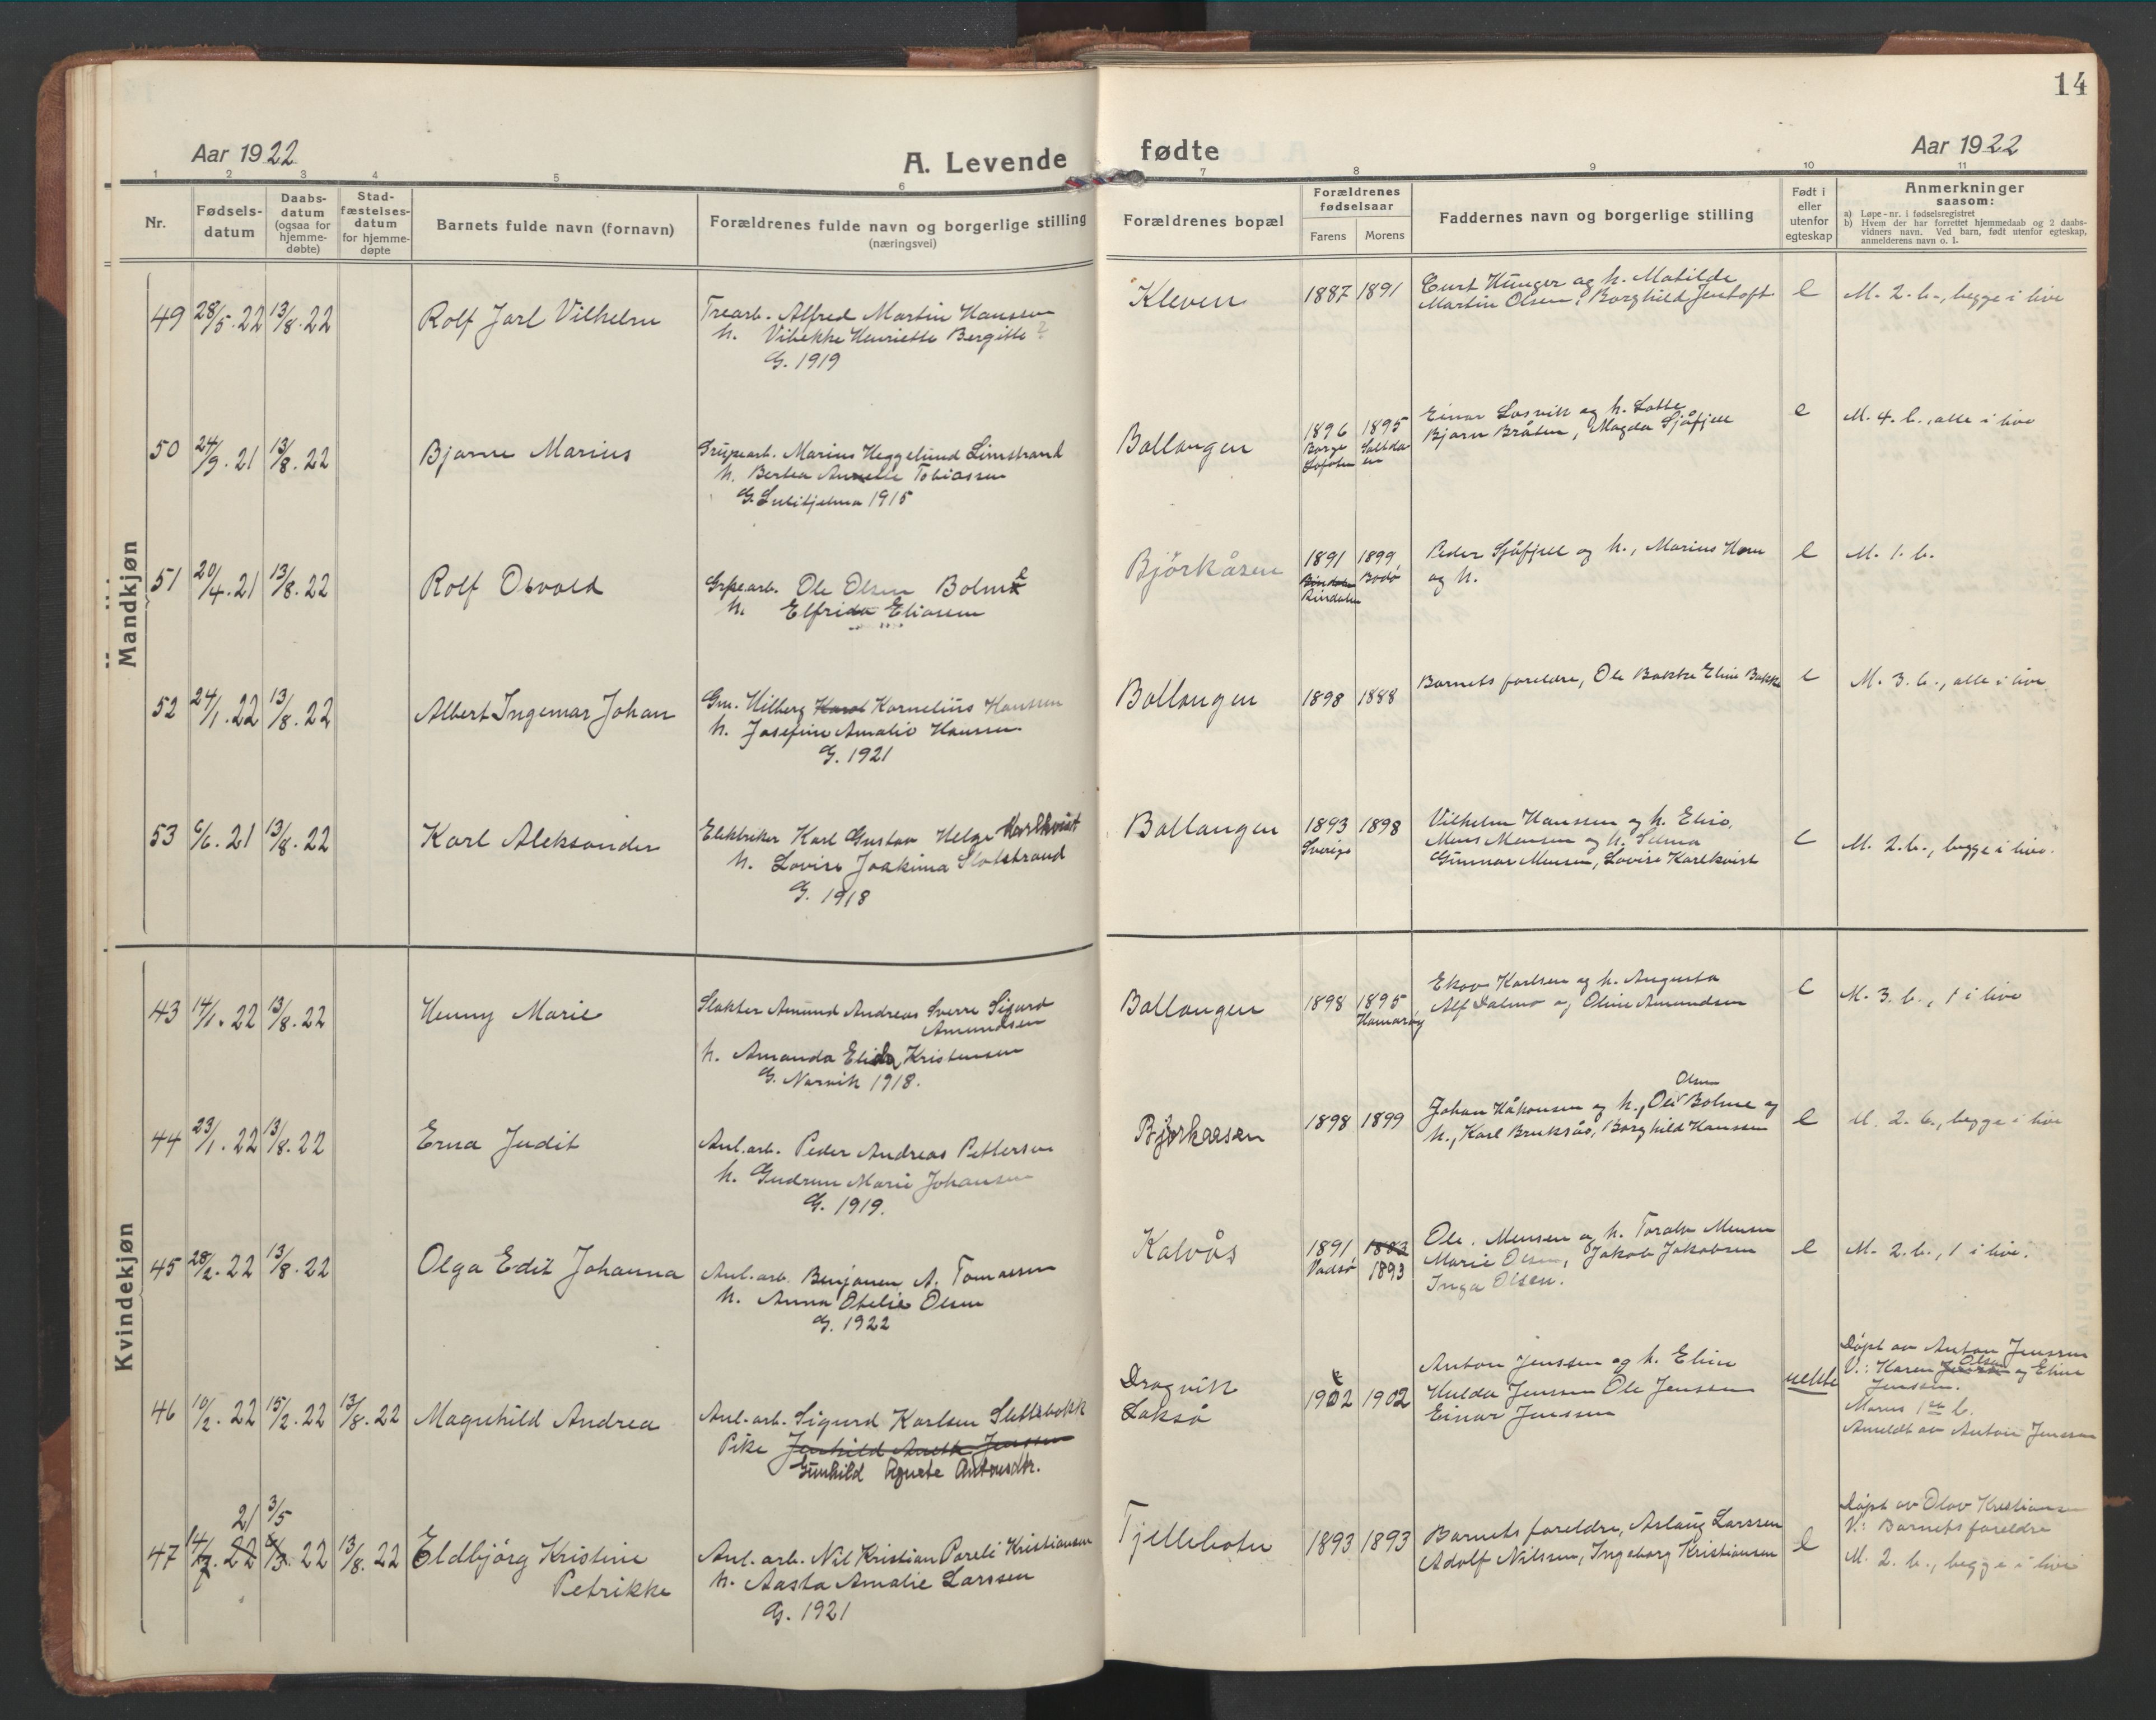 14
Aar 1922
A. Levende
fødte
Aar 1922
1 2 3 4 5 6 7 8 9 10 11
Nr.
Fødsels-
datum
Daabs-
datum
(ogsaa for
hjemme-
døbte)
Stad-
fæstelses-
datum
for hjemme-
døpte
Barnets fulde navn (fornavn)
Forældrenes fulde navn og borgerlige stilling
(næringsvei)
Forældrenes bopæl
Forældrenes
fødselsaar
Farens Morens
Faddernes navn og borgerlige stilling
Født i
eller
utenfor
egteskap
Anmerkninger
saasom:
a) Løpe-nr. i fødselsregistret
b) Hvem der har forrettet hjemmedaab og 2 daabs-
vidners navn. Ved barn, født utenfor egteskap,
anmelderens navn o. l.
Mandkjøn
49 28/5.22 13/8.22 Rolf Jarl Vilhelm
Trearb. Alfred Martin Hanssen
h. Vibekke Henriette Bergitte ?
G. 1919
Kleven 1887 1891
Curt Hunger og h. Matilde
Martin Olsen, Borghild Jentoft
e M. 2. b., begge i live
50 24/9.21 13/8.22 Bjarne Marius
Grupearb. Marius Heggelund Limstrand
h. Bertea Annette Tobiassen
G. Sulitjelma 1915
Ballangen 1896 1895
Borge Saltda-
Lofoten en
Einar Losvik og h. Lotte
Bjarn Bråten, Magda Sjåfjell
e M. 4. b., alle i live
51 20/4.21 13/8.22 Rolf Osvald
Grpe.arb. Ole Olsen Bolme
h. Elfrida Eliasen
Björkåsen 1891 1899
Bindalen Bodø
Bindalen
Peder Sjåfjell og h., Marius Horn
og h.
e M. 1. b.
52 24/1.22 13/8.22 Albert Ingemar Johan
Grn. Hilberg Karol Kornelius Hanssen
h. Josefine Amalie Hanssen
G. 1921
Ballangen 1898 1888
Barnets foreldre, Ole Bakke Eline Bakke
e M. 3. b., alle i live
53 6/6.21 13/8.22 Karl Aleksander
Elektriker Karl Gustav Helge Karlkvist
h. Lovise Joakima Slotstrand
G. 1918
Ballangen 1893 1898
Sverige
Vilhelm Hanssen og h. Elise,
Mons Monsen og h. Selma
Gunnar Monsen, Lovise Karlkvist
e M. 2. b., begge i live.
Kvindekjøn
43 14/1.22 13/8.22 Henny Marie
Slakter Amund Andreas Sverre Sigurd
Amundsen
h. Amanda Elida Kristensen
G. Narvik 1918.
Ballangen 1898 1895
Hamarøy
Ekov Karlsen og h. Augusta
Alf Dalmo og Oline Amundsen
e M. 3. b., 1 i live
44 23/1.22 13/8.22 Erna Judit
Anl.arb. Peder Andreas Pettersen
h. Gudrun Marie Johansen
G. 1919.
Bjørkaasen 1898 1899
Olsen
Johan Håkonsen og h., Ole Bolme og
h., Karl Bruksås, Borghild Hanssen
e M. 2. b., begge i live
45 28/2.22 13/8.22 Olga Edit Johanna
Anl.arb. Benjamen A. Tomassen
h. Anna Otelie Olsen
G. 1922
Kalvås 1891 1883
Vadsø 1893
Ole Monsen og h. Toralv Monsen
Marie Olsen, Jakob Jakobsen
Inga Olsen.
e M. 2. b., 1 i live.
46 10/2.22 15/2.22 13/8.22 Magnhild Andrea
Anl.arb. Sigurd Karlsen Slettebakk
Pike Jenhild Anette Jenssen
Gunhild Agnete Antonsdtr.
Dragvik
Lakså
1902 1902
Anton Jenssen og h. Eline
Hulda Jenssen Ole Jenssen
Einar Jenssen
uekte
Døpt av Anton Jenssen
V.: Karen Olsen og Eline
Jenssen.
Morens 1ste b.
Anmeldt av Anton Jenssen
21 3/5
47 14/7.22 22 13/8.22 Eldbjörg Kristine
Petrikke
Anl.arb. Nil Kristian Pareli Kristiansen
h. Aasta Amalie Larssen
G. 1921
Tjellebotn 1893 1893
Barnets foreldre, Aslaug Larssen
Adolf Nilssen, Ingeborg Kristiansen
e
Døpt av Olav Kristiansen
V.: Barnets foreldre
M. 2. b., begge i live